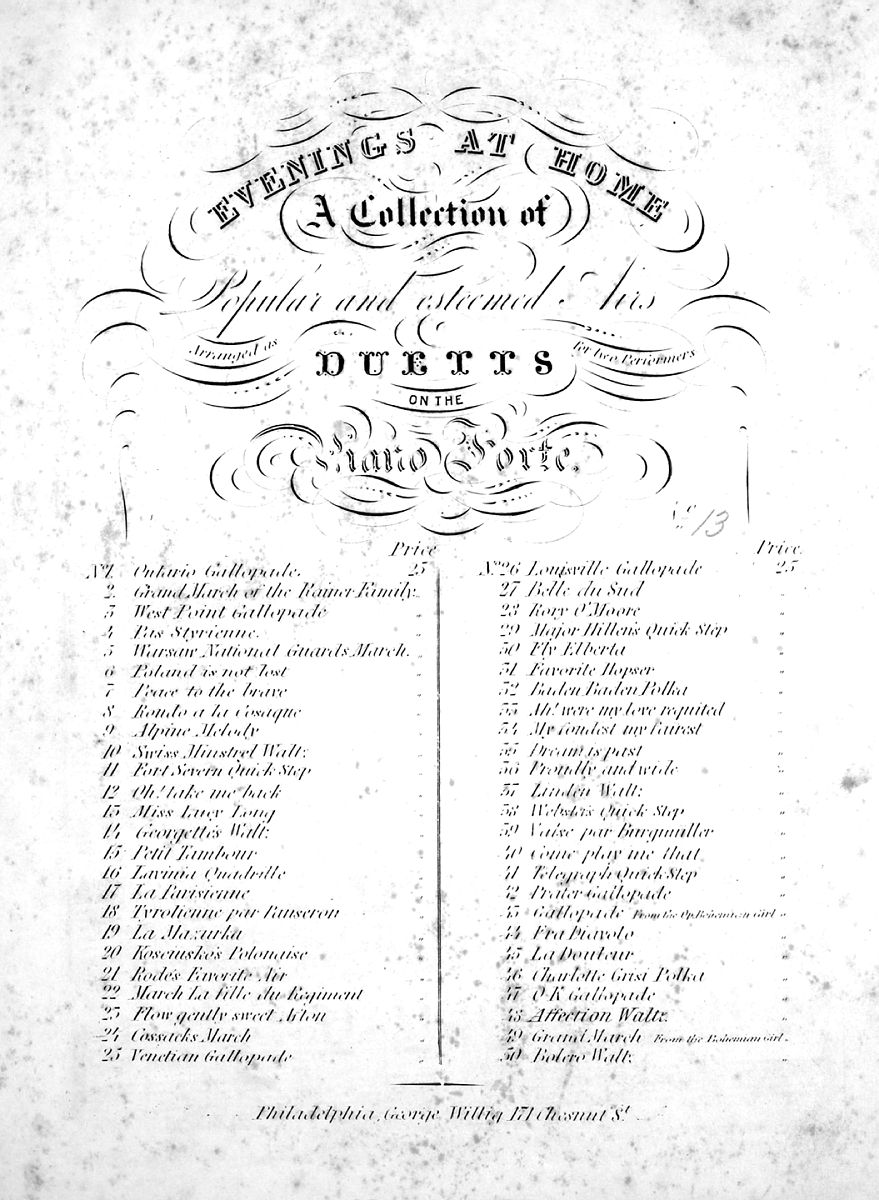 EVENINGS AT HOME
A Collection of
Popular and esteemed Airs
Arranged as
DUETTS
for two Performers
ON THE
Piano Forte.
No 13
Price
No 1. Ontario Gallopade. 25
2. Grand March of the Rainer Family. "
3 West Point Gallopade "
4 Pas Styrienne. "
5 Warsaw National Guards March. "
6 Poland is not lost "
7 Peace to the brave "
8 Rondo a la Cosaque "
9 Alpine Melody "
10 Swiss Minstrel Waltz "
11 Fort Severn Quick Step "
12 Oh! take me back "
13 Miss Lucy Long "
14 Georgette's Waltz "
15 Petit Tambour "
16 Lavinia Quadrille "
17 La Parisienne "
18 Tyrolienne par Panseron "
19 La Mazurka "
20 Kosciusko's Polonaise "
21 Rode's Favorite Air "
22 March La fille du Regiment "
23 Flow gently sweet Afton "
24 Cossacks March "
25 Venetian Gallopade "
Price.
No 26 Louisville Gallopade 25
27 Belle du Sud "
28 Rory O'Moore "
29 Major Hillen's Quick Step "
30 Fly Elberta "
31 Favorite Hopser "
32 Baden Baden Polka "
33 Ah! were my love requited "
34 My fondest my fairest "
35 Dream is past "
36 Proudly and wide "
37 Linden Waltz "
38 Webster's Quick Step "
39 Valse par Burgmuller "
40 Come play me that "
41 Telegraph Quick Step "
42 Prater Gallopade "
43 Gallopade From the Op. Bohemian Girl "
44 Fra Diavolo "
45 La Douleur "
46 Charlotte Grisi Polka "
47 O.K Gallopade "
48 Affection Waltz. "
49 Grand March From the Bohemian Girl "
50 Bolero Waltz "
Philadelphia, George Willig 171 Chesnut St.